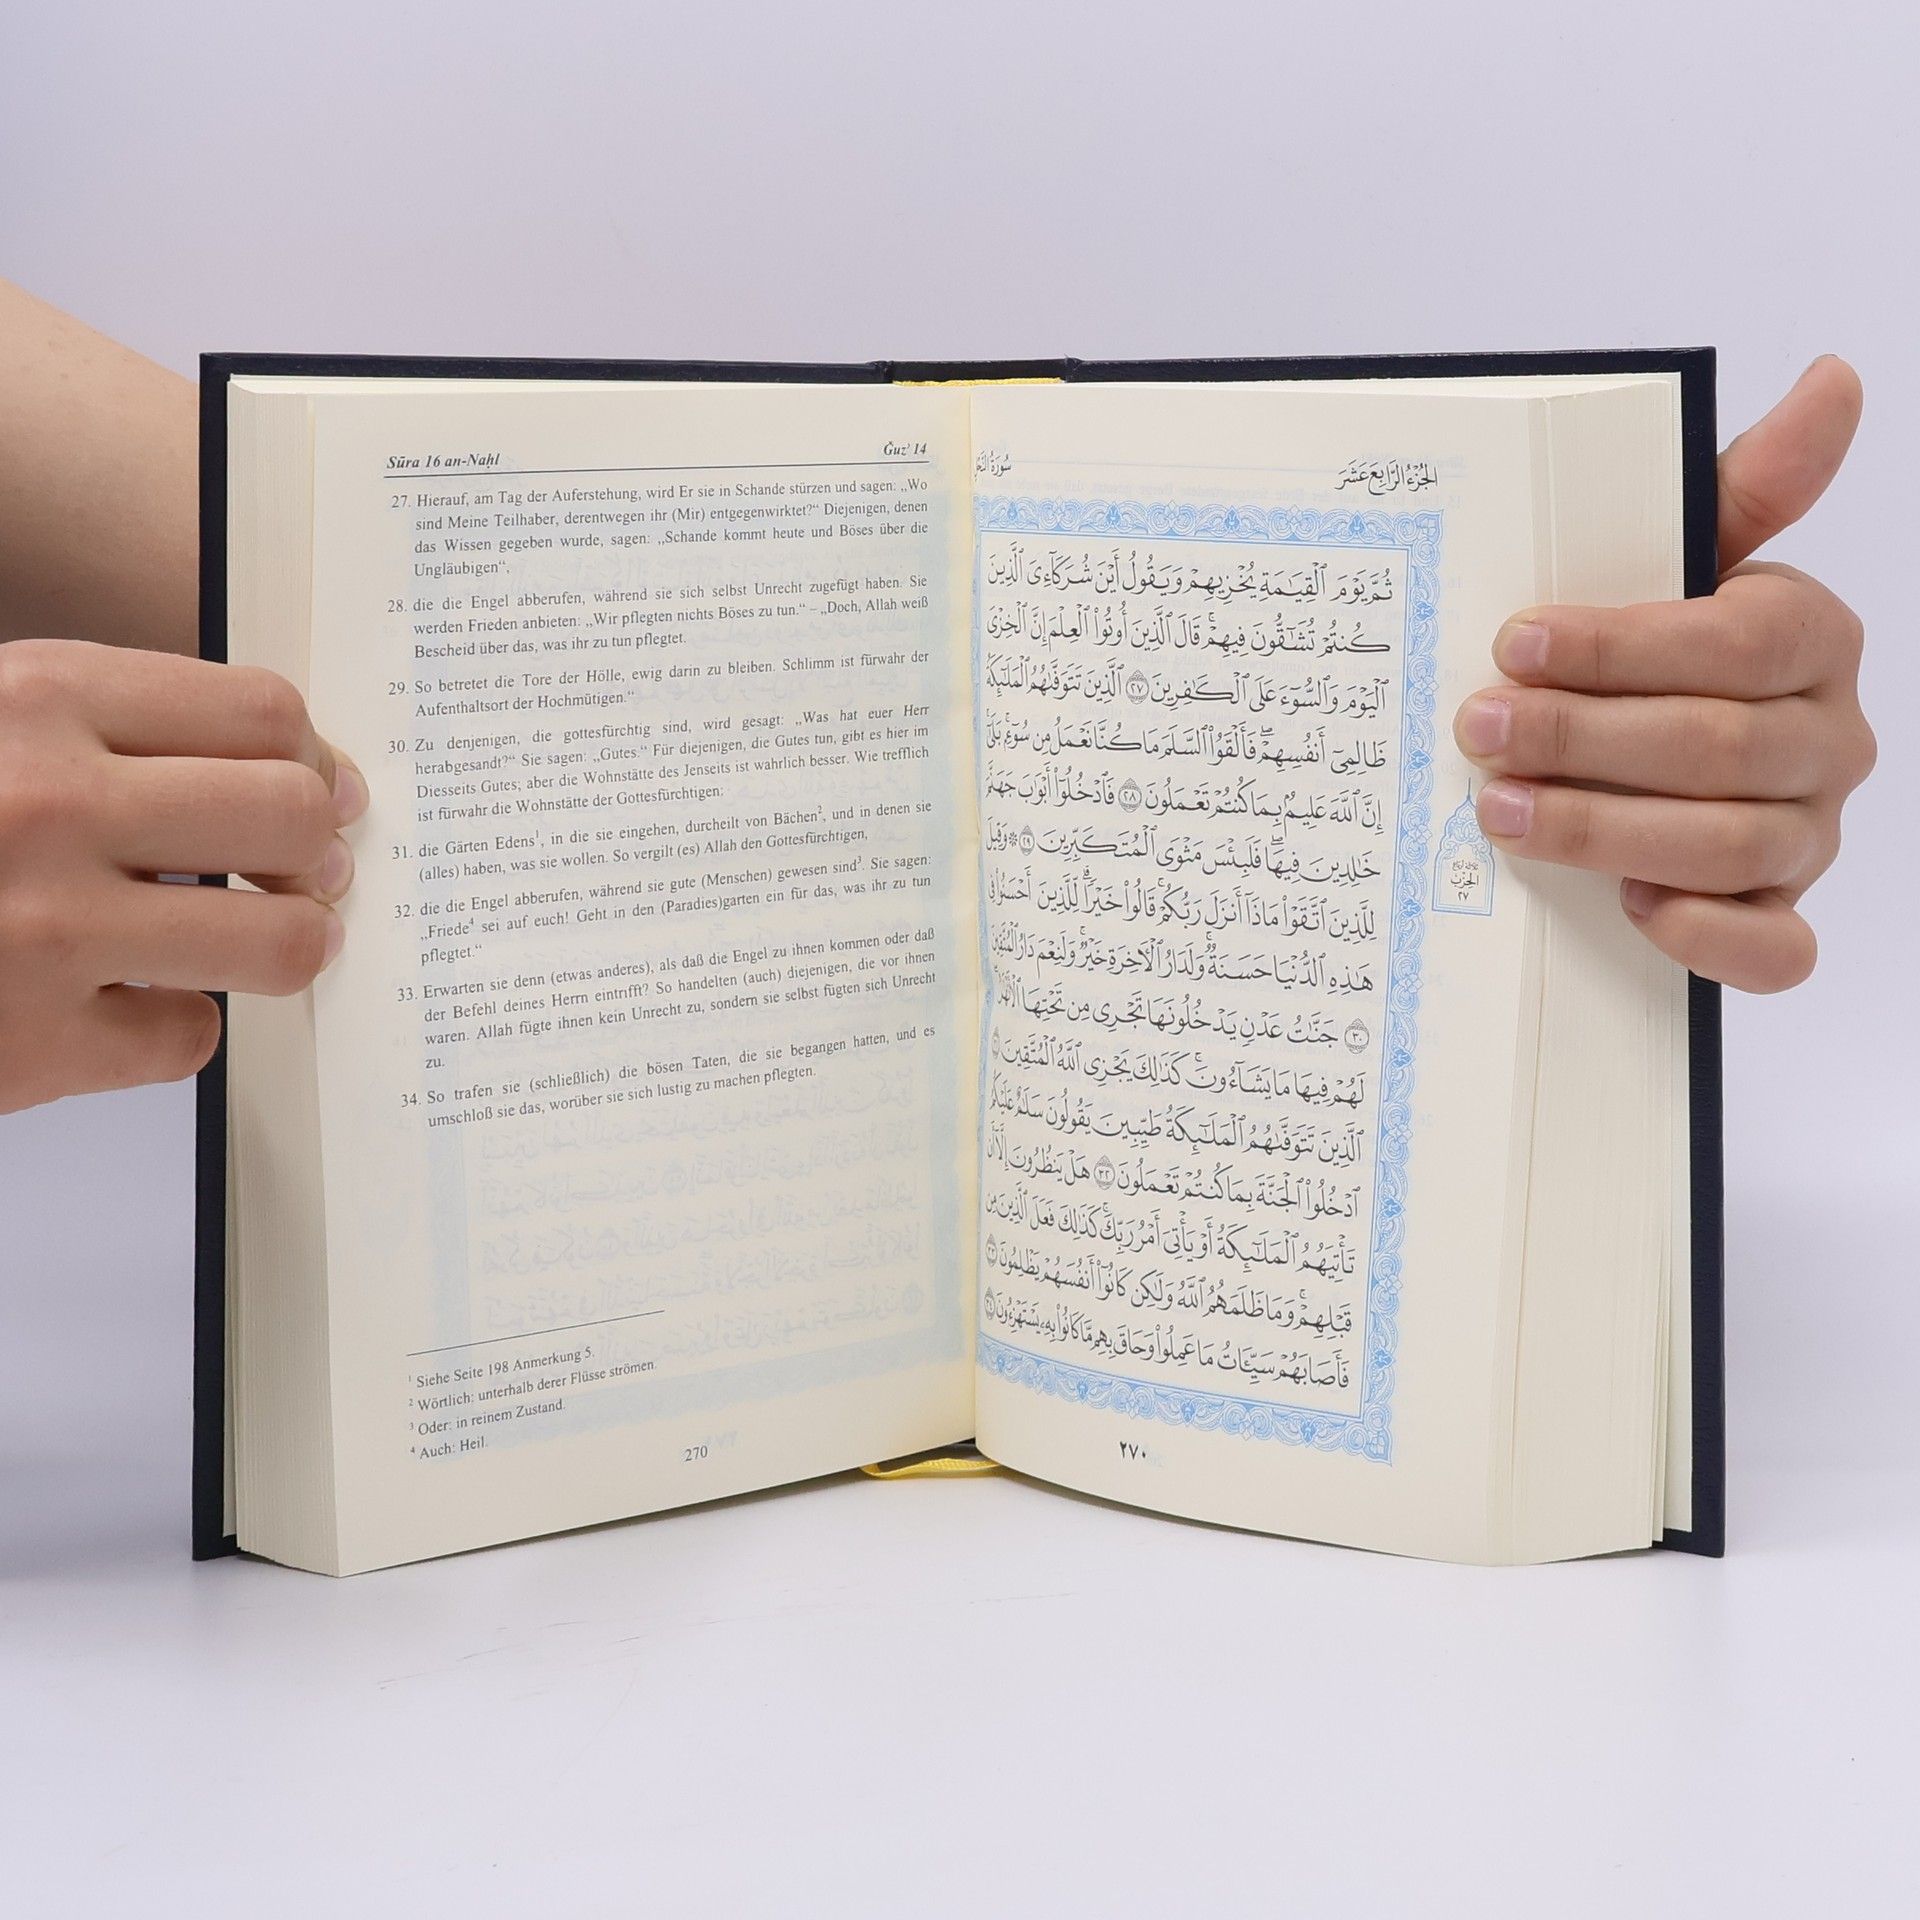 Sūra 16 an-Naḥl
Ǧuzʾ 14
27. Hierauf, am Tag der Auferstehung, wird Er sie in Schande stürzen und sagen: „Wo
sind Meine Teilhaber, derentwegen ihr (Mir) entgegenwirktet?“ Diejenigen, denen
das Wissen gegeben wurde, sagen: „Schande kommt heute und Böses über die
Ungläubigen“,
28. die die Engel abberufen, während sie sich selbst Unrecht zugefügt haben. Sie
werden Frieden anbieten: „Wir pflegten nichts Böses zu tun.“ – „Doch, Allah weiß
Bescheid über das, was ihr zu tun pflegtet.
29. So betretet die Tore der Hölle, ewig darin zu bleiben. Schlimm ist fürwahr der
Aufenthaltsort der Hochmütigen.“
30. Zu denjenigen, die gottesfürchtig sind, wird gesagt: „Was hat euer Herr
herabgesandt?“ Sie sagen: „Gutes.“ Für diejenigen, die Gutes tun, gibt es hier im
Diesseits Gutes; aber die Wohnstätte des Jenseits ist wahrlich besser. Wie trefflich
ist fürwahr die Wohnstätte der Gottesfürchtigen:
31. die Gärten Edens¹, in die sie eingehen, durcheilt von Bächen², und in denen sie
(alles) haben, was sie wollen. So vergilt (es) Allah den Gottesfürchtigen,
32. die die Engel abberufen, während sie gute (Menschen) gewesen sind³. Sie sagen:
„Friede⁴ sei auf euch! Geht in den (Paradies)garten ein für das, was ihr zu tun
pflegtet.“
33. Erwarten sie denn (etwas anderes), als daß die Engel zu ihnen kommen oder daß
der Befehl deines Herrn eintrifft? So handelten (auch) diejenigen, die vor ihnen
waren. Allah fügte ihnen kein Unrecht zu, sondern sie selbst fügten sich Unrecht
zu.
34. So trafen sie (schließlich) die bösen Taten, die sie begangen hatten, und es
umschloß sie das, worüber sie sich lustig zu machen pflegten.
¹ Siehe Seite 198 Anmerkung 5.
² Wörtlich: unterhalb derer Flüsse strömen.
³ Oder: in reinem Zustand.
⁴ Auch: Heil.
270
الجُزْءُ الرَّابِعَ عَشَرَ
سُورَةُ النَّحْلِ
ثُمَّ يَوْمَ ٱلْقِيَٰمَةِ يُخْزِيهِمْ وَيَقُولُ أَيْنَ شُرَكَآءِىَ ٱلَّذِينَ
كُنتُمْ تُشَٰٓقُّونَ فِيهِمْ ۚ قَالَ ٱلَّذِينَ أُوتُوا۟ ٱلْعِلْمَ إِنَّ ٱلْخِزْىَ
ٱلْيَوْمَ وَٱلسُّوٓءَ عَلَى ٱلْكَٰفِرِينَ ٢٧ ٱلَّذِينَ تَتَوَفَّىٰهُمُ ٱلْمَلَٰٓئِكَةُ
ظَالِمِىٓ أَنفُسِهِمْ ۖ فَأَلْقَوُا۟ ٱلسَّلَمَ مَا كُنَّا نَعْمَلُ مِن سُوٓءٍۭ ۚ بَلَىٰٓ
إِنَّ ٱللَّهَ عَلِيمٌۢ بِمَا كُنتُمْ تَعْمَلُونَ ٢٨ فَٱدْخُلُوٓا۟ أَبْوَٰبَ جَهَنَّمَ
خَٰلِدِينَ فِيهَا ۖ فَلَبِئْسَ مَثْوَى ٱلْمُتَكَبِّرِينَ ٢٩ ۞ وَقِيلَ
لِلَّذِينَ ٱتَّقَوْا۟ مَاذَآ أَنزَلَ رَبُّكُمْ ۚ قَالُوا۟ خَيْرًا ۗ لِّلَّذِينَ أَحْسَنُوا۟ فِى
هَٰذِهِ ٱلدُّنْيَا حَسَنَةٌ ۚ وَلَدَارُ ٱلْءَاخِرَةِ خَيْرٌ ۚ وَلَنِعْمَ دَارُ ٱلْمُتَّقِينَ
٣٠ جَنَّٰتُ عَدْنٍ يَدْخُلُونَهَا تَجْرِى مِن تَحْتِهَا ٱلْأَنْهَٰرُ ۖ
لَهُمْ فِيهَا مَا يَشَآءُونَ ۚ كَذَٰلِكَ يَجْزِى ٱللَّهُ ٱلْمُتَّقِينَ ٣١
ٱلَّذِينَ تَتَوَفَّىٰهُمُ ٱلْمَلَٰٓئِكَةُ طَيِّبِينَ ۙ يَقُولُونَ سَلَٰمٌ عَلَيْكُمُ
ٱدْخُلُوا۟ ٱلْجَنَّةَ بِمَا كُنتُمْ تَعْمَلُونَ ٣٢ هَلْ يَنظُرُونَ إِلَّآ أَن
تَأْتِيَهُمُ ٱلْمَلَٰٓئِكَةُ أَوْ يَأْتِىَ أَمْرُ رَبِّكَ ۚ كَذَٰلِكَ فَعَلَ ٱلَّذِينَ مِن
قَبْلِهِمْ ۚ وَمَا ظَلَمَهُمُ ٱللَّهُ وَلَٰكِن كَانُوٓا۟ أَنفُسَهُمْ يَظْلِمُونَ ٣٣
فَأَصَابَهُمْ سَيِّـَٔاتُ مَا عَمِلُوا۟ وَحَاقَ بِهِم مَّا كَانُوا۟ بِهِۦ يَسْتَهْزِءُونَ ٣٤
ثلاثة أرباع
الحِزْب
٢٧
٢٧٠